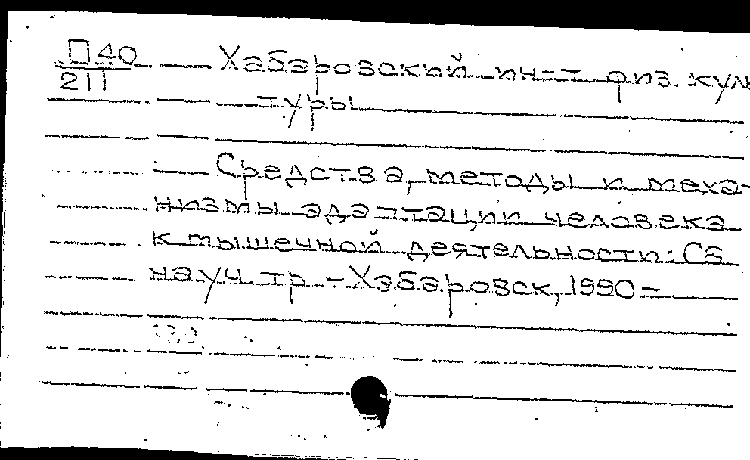 П40
211
Хабаровский ин-т физ. куль
туры
Средства, методы и меха-
низмы адаптации человека
к мышечной деятельности: Сб
науч. тр. - Хабаровск, 1990 -